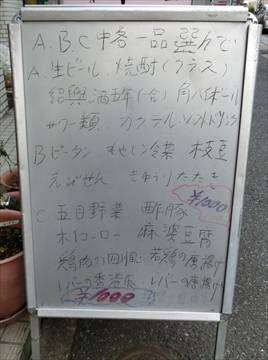 A.B.C 中各一品選んで
A.生ビール 焼酎(グラス)
紹興酒五年(一合) 角ハイボール
サワー類 カクテル ソフトドリンク
Bピータン もやし冷菜 枝豆
えびせん きゅうりたたき
¥1000
C 五目野菜 酢豚
ホイコーロー 麻婆豆腐
鶏肉の四川風 若鶏の唐揚げ
レバーの香港風 レバーの唐揚げ
¥1000